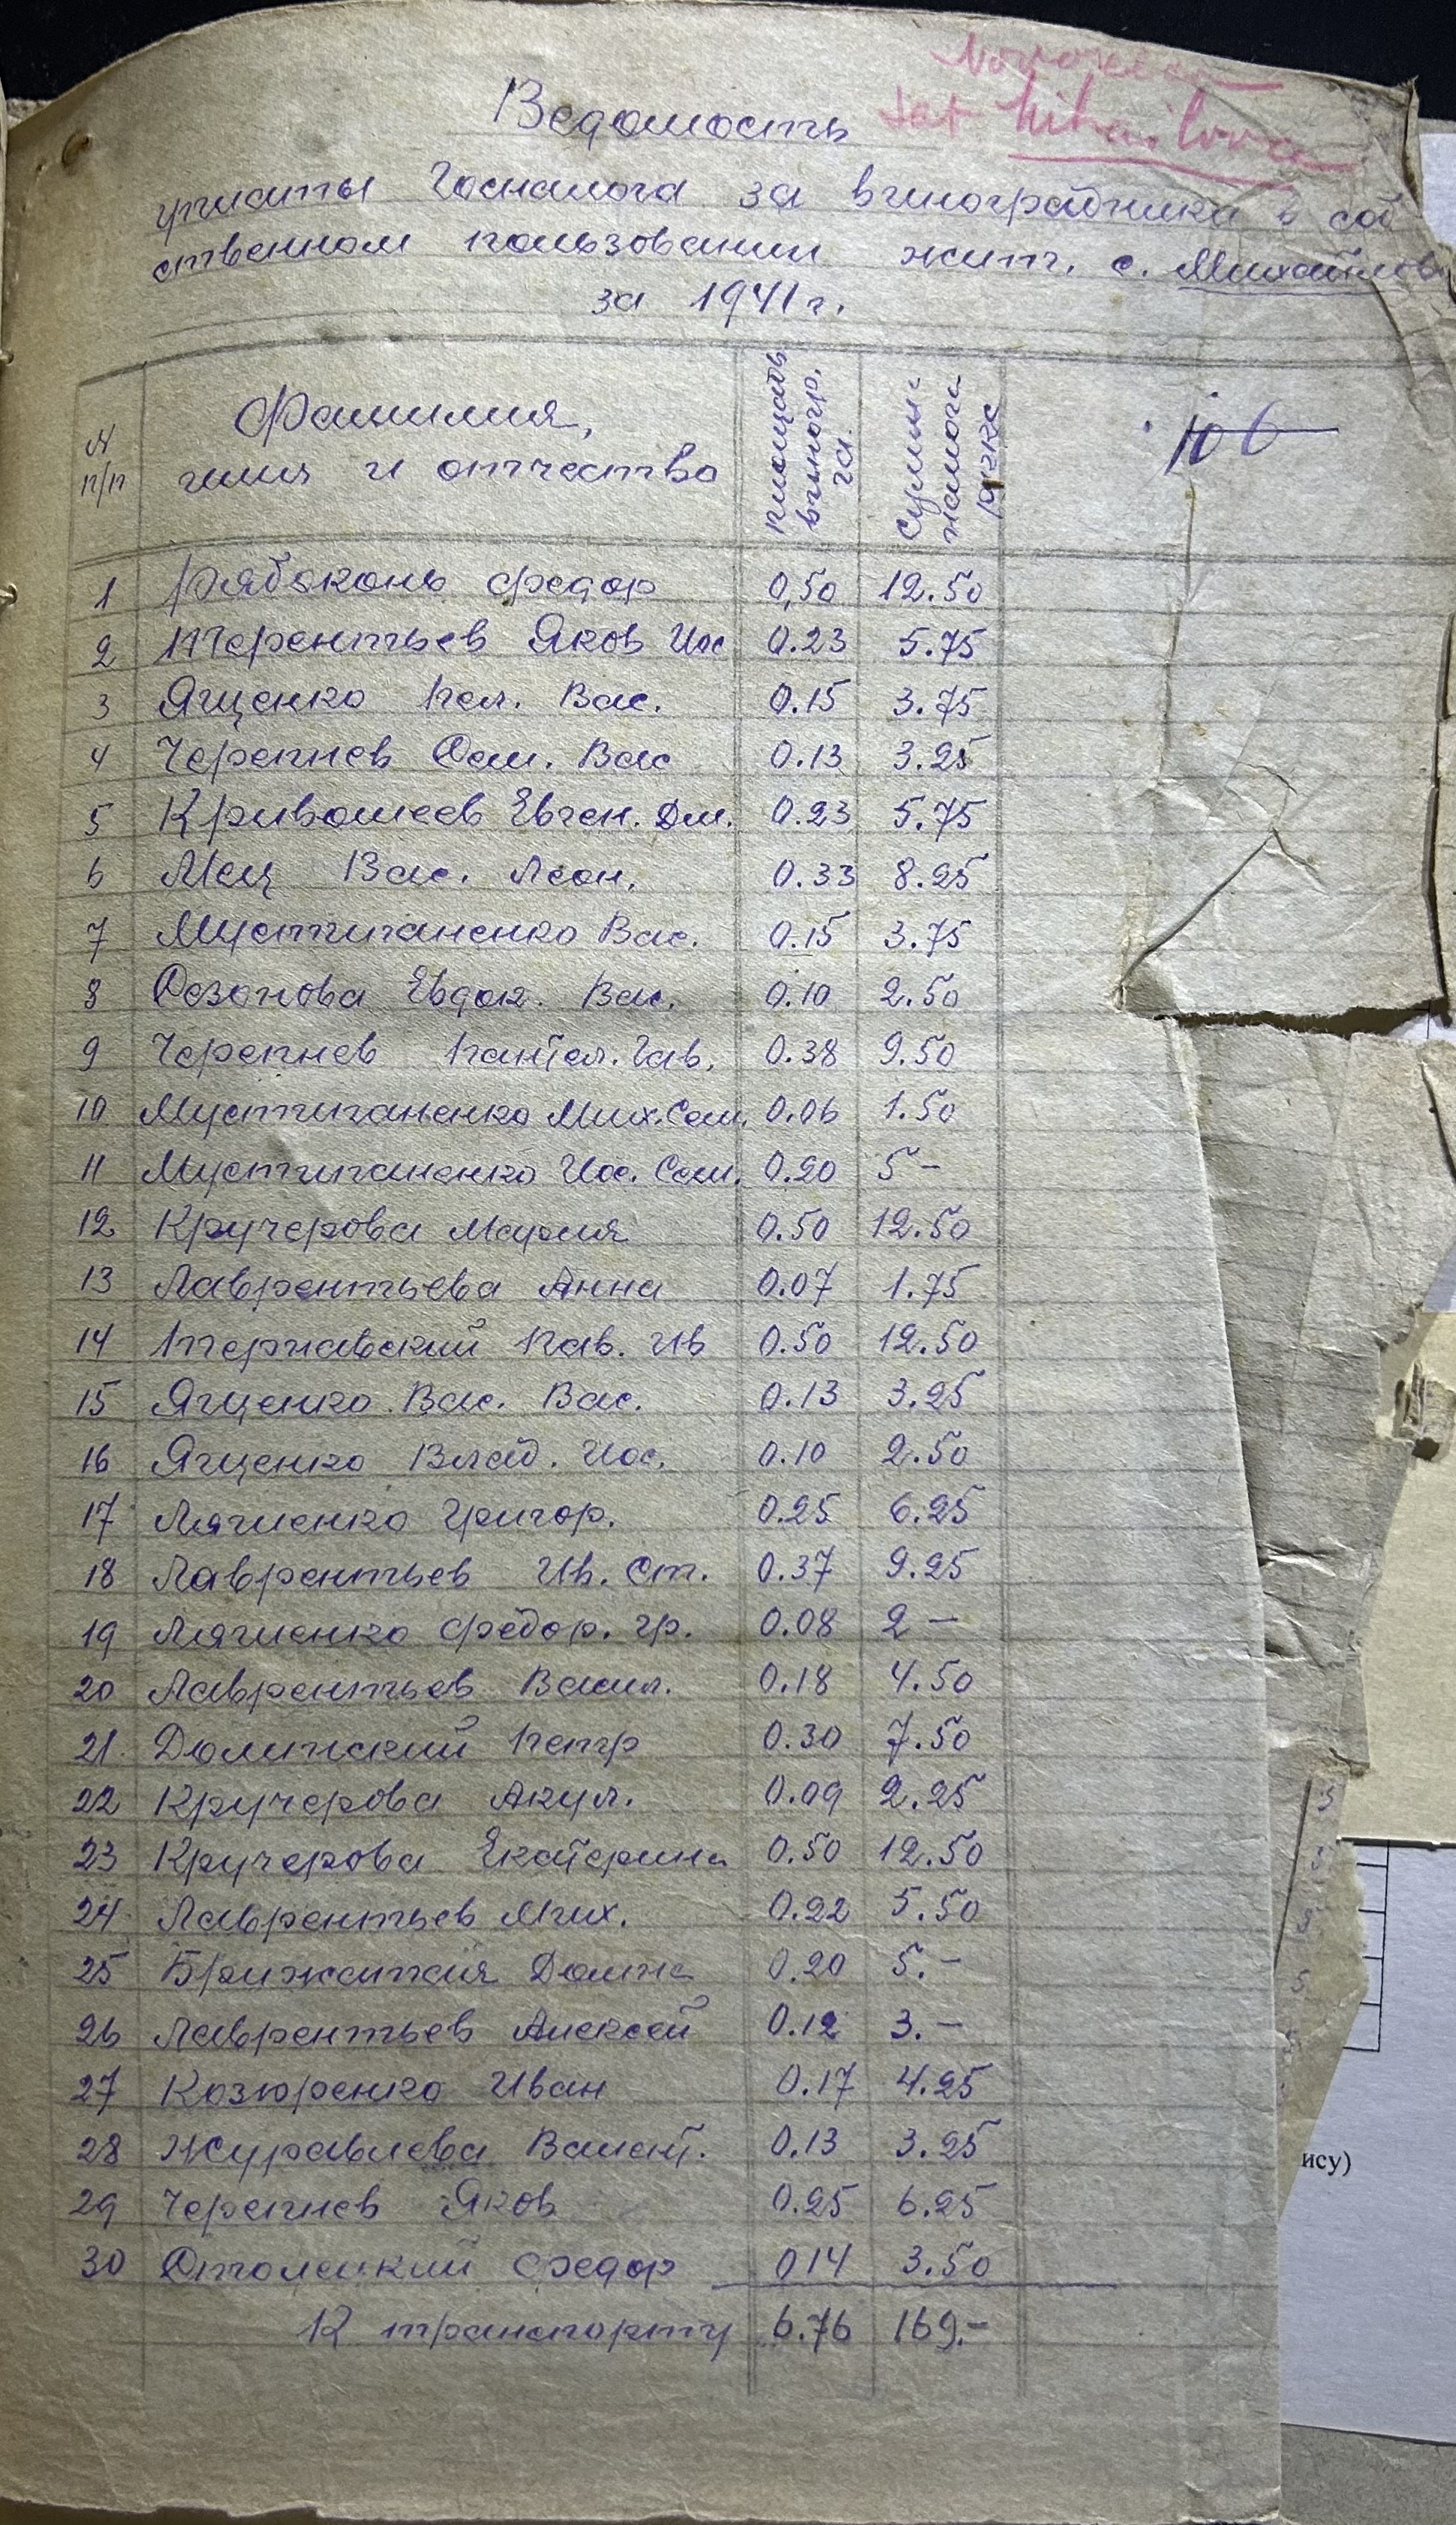 Novo
sat Mihailovca
Ведомость
уплаты Госналога за виноградники в соб
ственном пользовании жит. с. Михайловк
за 1941 г.
106
N п/п Фамилия, имя и отчество площадь виногр. га. Сумма налога
1 Рябоконь Федор 0,50 12.50
2 Терентьев Яков Иос 0.23 5.75
3 Ященко Пел. Вас. 0.15 3.75
4 Черепнев Сам. Вас 0.13 3.25
5 Кривошеев Евген. Дм. 0.23 5.75
6 Мец Вас. Леон. 0.33 8.25
7 Мустипаненко Вас. 0.15 3.75
8 Созонова Евдок. Вас. 0.10 2.50
9 Черепнев Пантел. Гав. 0.38 9.50
10 Мустипаненко Мих. Сам. 0.06 1.50
11 Мустипаненко Иос. Сам. 0.20 5 –
12 Кручерова Мария 0.50 12.50
13 Лаврентьева Анна 0.07 1.75
14 Терпавский Пав. Ив 0.50 12.50
15 Ященко Вас. Вас. 0.13 3.25
16 Ященко Влад. Иос. 0.10 2.50
17 Григор. 0.25 6.25
18 Лаврентьев Ив. Ст. 0.37 9.25
19 Федор. Гр. 0.08 2 –
20 Лаврентьев Васил. 0.18 4.50
21 Долинский Петр 0.30 7.50
22 Кручерова Акул. 0.09 2.25
23 Кручерова Екатерина 0.50 12.50
24 Лаврентьев Мих. 0.22 5.50
25 Брижатая Домна 0.20 5.–
26 Лаврентьев Алексей 0.12 3.–
27 Козюренко Иван 0.17 4.25
28 Журавлева Валент. 0.13 3.25
29 Черепнев Яков 0.25 6.25
30 Федор 0 14 3.50
К транспорту 6.76 169.–
ису)